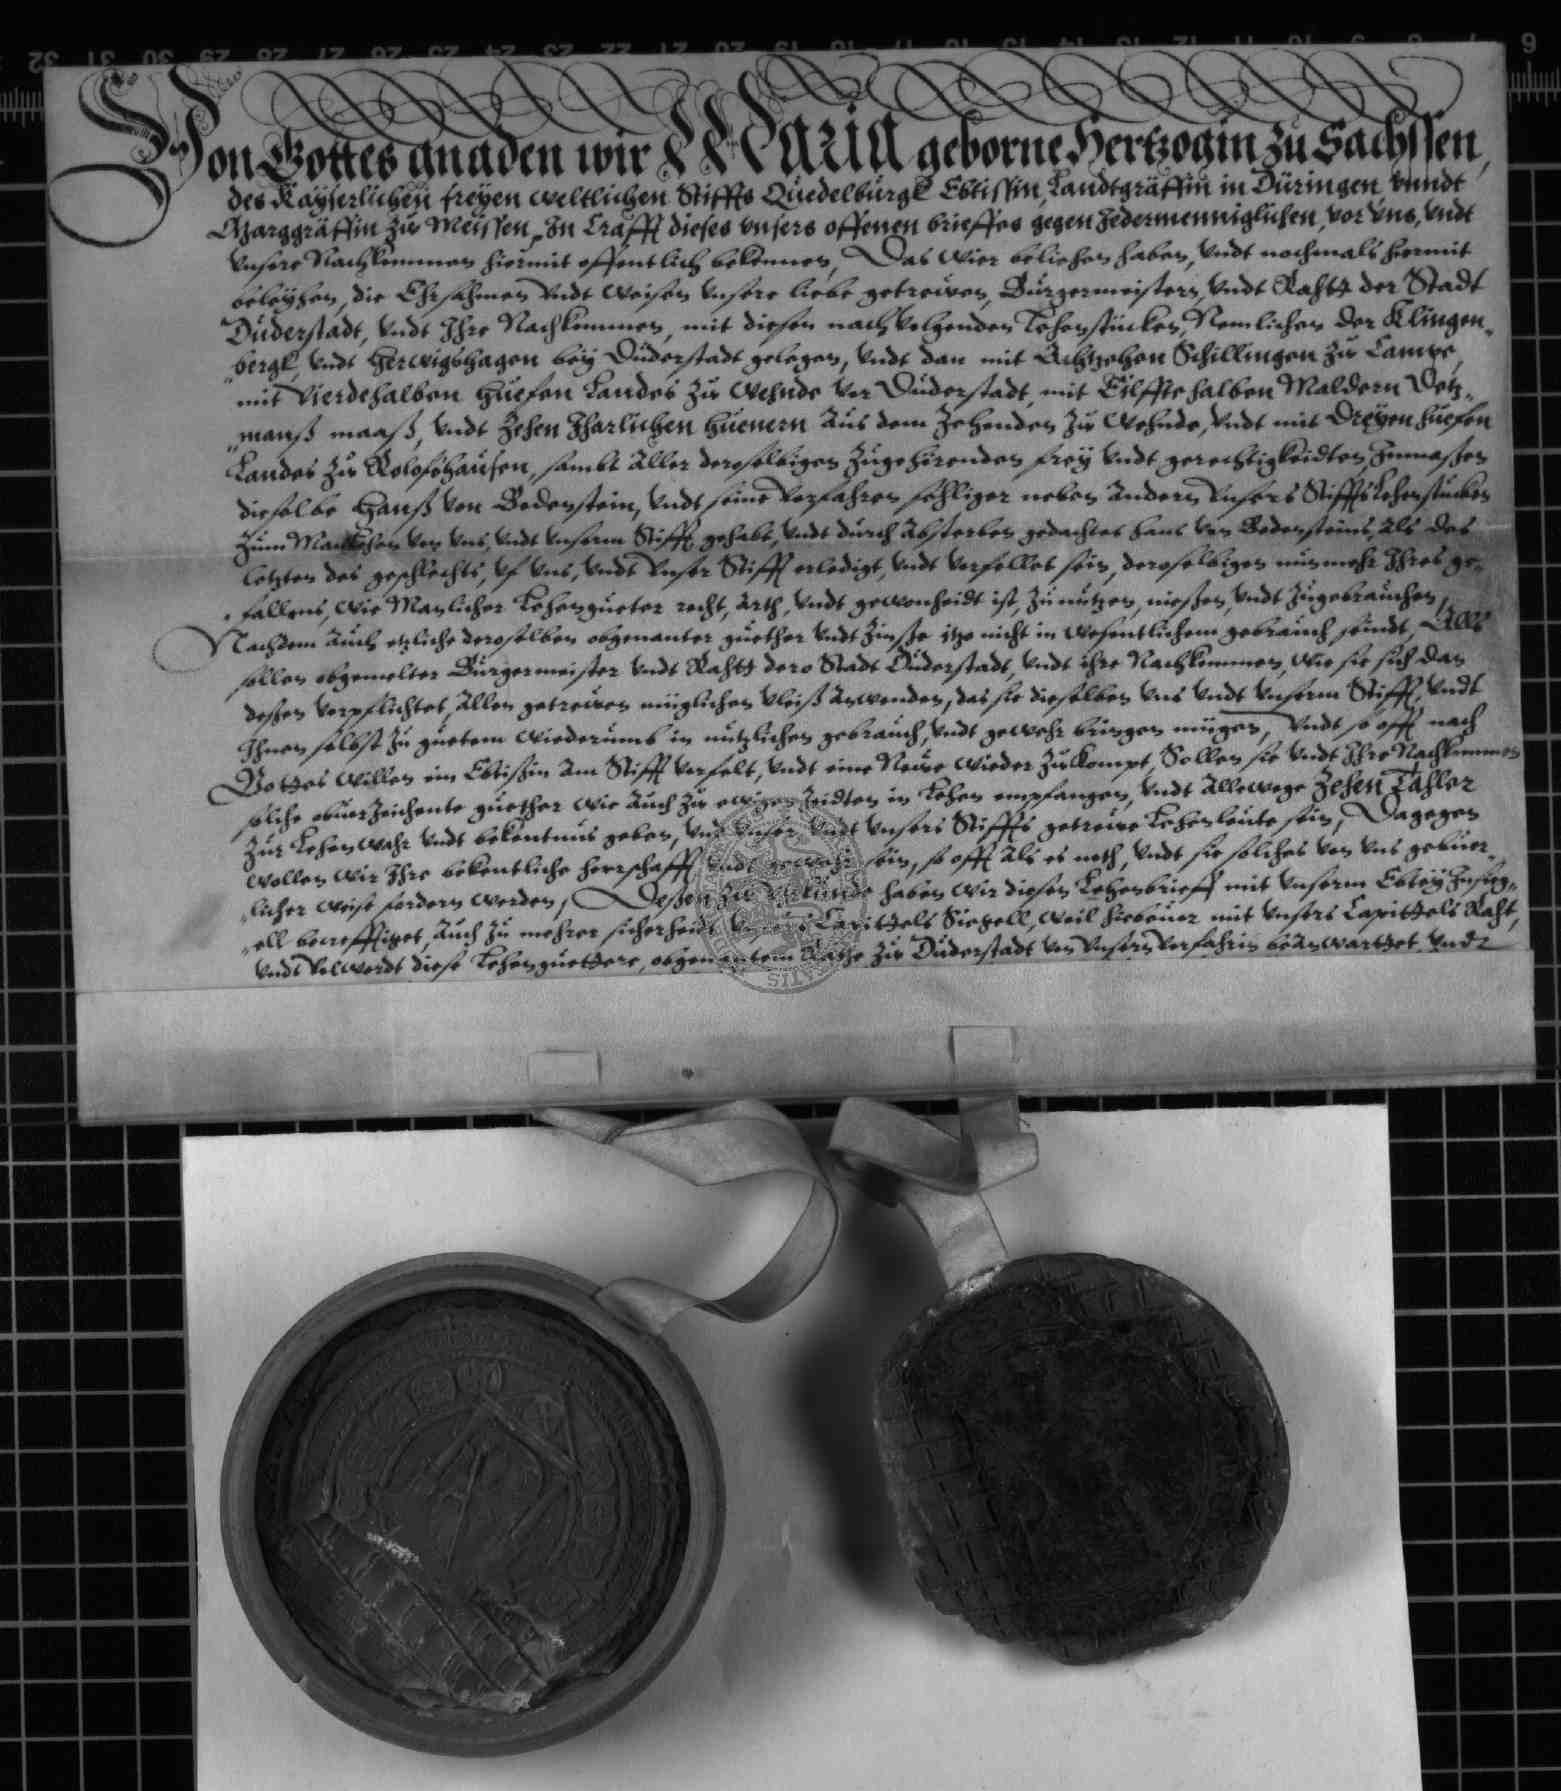 Von Gottes gnaden wir Maria geborne Hertzogin zu Sachssen,
des Kayserlichen freyen weltlichen Stiffts Quedelburgk Ebtissin, Landtgräffin in Düringen vnndt
Marggräffin zu Meissen, In Crafft dieses vnsers offenen brieffes gegen Jedermenniglichen, vor vns, vndt
vnsere Nachkommen hiermit offentlich bekennen, Das wier beliehen haben, vndt nochmals hiermit
beleyhen, die Ehrsahmen vndt weisen vnsere liebe getrewen, Bürgermeistern, vndt Rahtt der Stadt
Duderstadt, vndt Ihre Nachkommen, mit diesen nachvolgenden Lehenstücken, Nemlichen der Klingen„
„bergk, vndt Herwigshagen bey Duderstadt gelegen, vndt dan mit Achtzehen Schillingen zu Campe,
mit Vierdehalben Huefen Landes zu Wehnde vor Duderstadt, mit Eilfftehalben Maldern Detz„
„manß maaß, vndt Zehen Jharlichen Huenern Aus dem Zehenden zu Wehnde, vndt mit Dreyen huefen
Landes zu Rolofshausen, sambt aller deroselbigen zugehörenden frey vndt gerechtigkeidten, Inmaßen
dieselbe Hanß von Bodenstein, vndt seine Vorfahren sehliger neben andern vnsers Stiffts Lehenstücken
zum Manlehen von vns, vndt vnserm Stifft gehabt, vndt durch absterben gedachtes Hans von Bodensteins, als des
letzten des geschlechts, vf vns, vndt vnser Stifft erledigt, vndt verfellet sein, deroselbigen nunmehr Ihres ge„
„fallens, wie Manlicher Lehengueter recht, arth, vndt gewonheidt ist, zu nutzen, nießen, vndt zugebrauchen,
Nachdem auch etzliche deroselben obgenanter guether vndt Zinße itzo nicht in wesentlichem gebrauch seindt, Alls
sollen obgemelter Bürgermeister vndt Rahtt dero Stadt Duderstadt, vndt ihre Nachkommen, wie sie sich dan
deßen verpflichtet, allen getrewen müglichen vleiß anwenden, das sie dieselben vns vndt vnserm Stifft, vndt
Ihnen selbst zu guetem wiederumb in nützlichen gebrauch, vndt gewehr bringen mügen, vndt so offt nach
Gottes willen ein Ebtißin am Stifft verfelt, vndt eine Newe wieder zukompt, Sollen sie vndt Ihre Nachkommen
solche oberzeichente guether wie auch zu ewigen Zeidten in Lehen empfangen, vndt allewege Zehen Tahler
zur Lehenwahr vndt bekentnus geben, vnd vnser vndt vnsers Stiffts getrewe Lehenleute sein, Dagegen
wollen wir Ihre bekentliche herrschafft vndt gewehr sein, so offt als es noth, vndt sie solches von vns gebuer„
„licher weise fordern werden, Deßen zu Vrkunde haben wir diesen Lehenbrieff mit vnserm Ebtey Insieg„
„ell bekrefftiget, Auch zu mehrer sicherheidt vnsers Capittels Siegell, weil hiebeuor mit vnsers Capittels Raht,
vndt volwordt diese Lehenguettere, obgenantem Rathe zu Duderstadt von vnsern Vorfahrin beanwarttet vndt